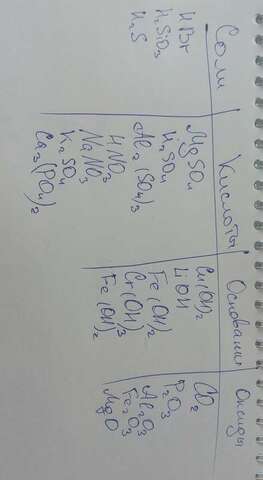 Соли
HBr
H₂SiO₃
H₂S
Кислоты
MgSO₄
H₂SO₄
Al₂(SO₄)₃
HNO₃
NaNO₃
K₂SO₄
Ca₃(PO₄)₂
Основания
Cu(OH)₂
LiOH
Fe(OH)₂
Cr(OH)₃
Fe(OH)₂
Оксиды
CO₂
P₂O₃
Al₂O₃
Fe₂O₃
MgO